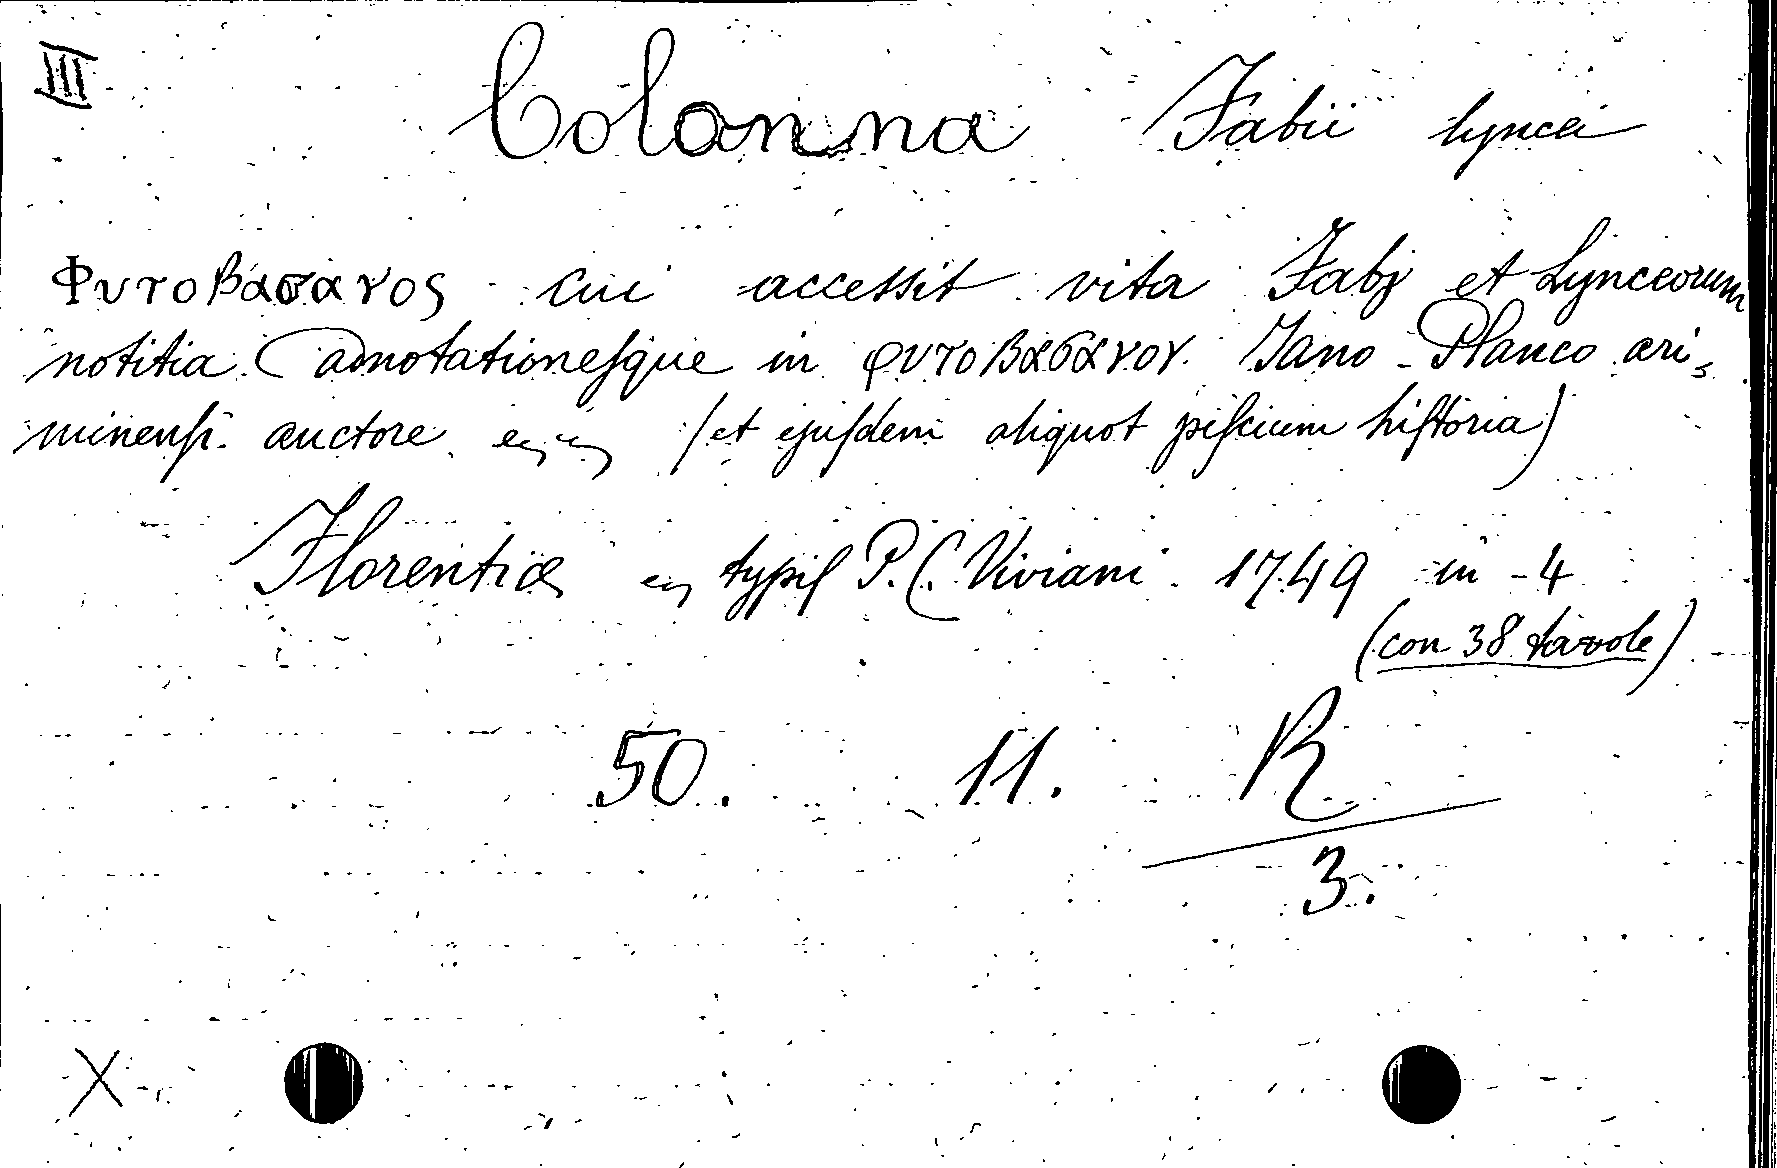 III
Colanna Fabii lyncei
Φυτοβασανος cui accessit vita Fabj et Lynceorum
notitia (adnotationesque in φυτοβασανον. Iano Planco ari-
minensi auctore (et ejusdem aliquot piscium historia)
Florentiæ typis P. C. Viviani 1749 in-4
(con 38 tavole)
50. 11. R
3.
X